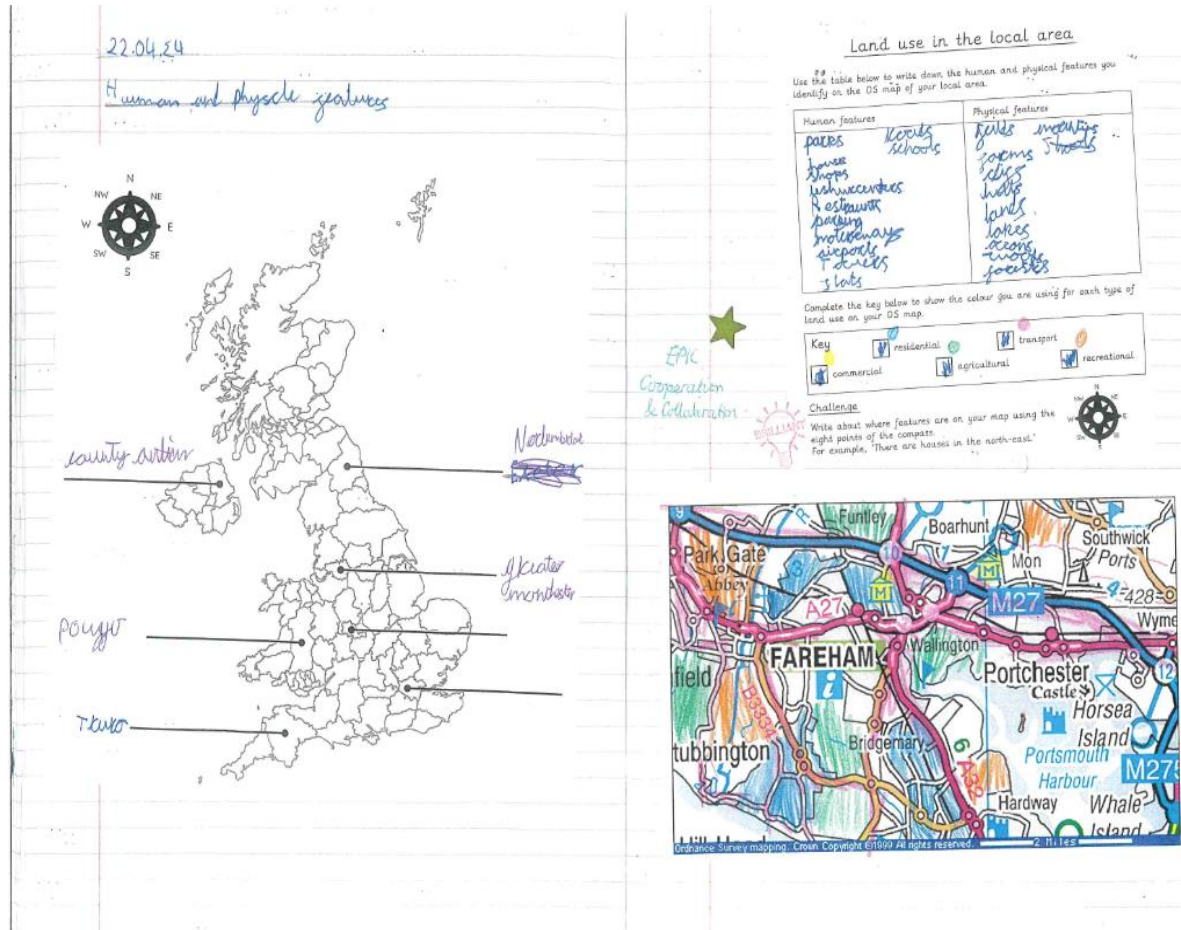 22.04.24
Human and physcle features
N
NW
NE
W
E
SW
SE
S
county antrim
Nothumbeland
greater
manchester
powys
Land use in the local area
Use the table below to write down the human and physical features you
identify on the OS map of your local area.
Human features
Physical features
parks
Roads
schools
house
shops
Restraunts
parking
moterways
airports
Towers
flats
fields
mountins
farms
clifs
hills
land
lakes
oceans
woods
forests
Complete the key below to show the colour you are using for each type of
land use on your OS map.
Key
residential
transport
commercial
agricultural
recreational
EPIC
Cooperation
& Collaboration
BRILLIANT
Challenge
Write about where features are on your map using the
eight points of the compass.
For example, 'There are houses in the north-east.'
N
NW
NE
W
E
SW
SE
S
9
R
Funtley
Boarhunt
Southwick
Park Gate
10
Mon
Ports
Abbey
M
11
M
428
A27
M27
Wyme
Wallington
FAREHAM
Portchester
12
field
i
Castle
Horsea
Island
B3334
Bridgemary
6
Portsmouth
Harbour
tubbington
A32
M275
Hardway
Whale
Island
Ordnance Survey mapping. Crown Copyright ©1999 All rights reserved.
2 Miles